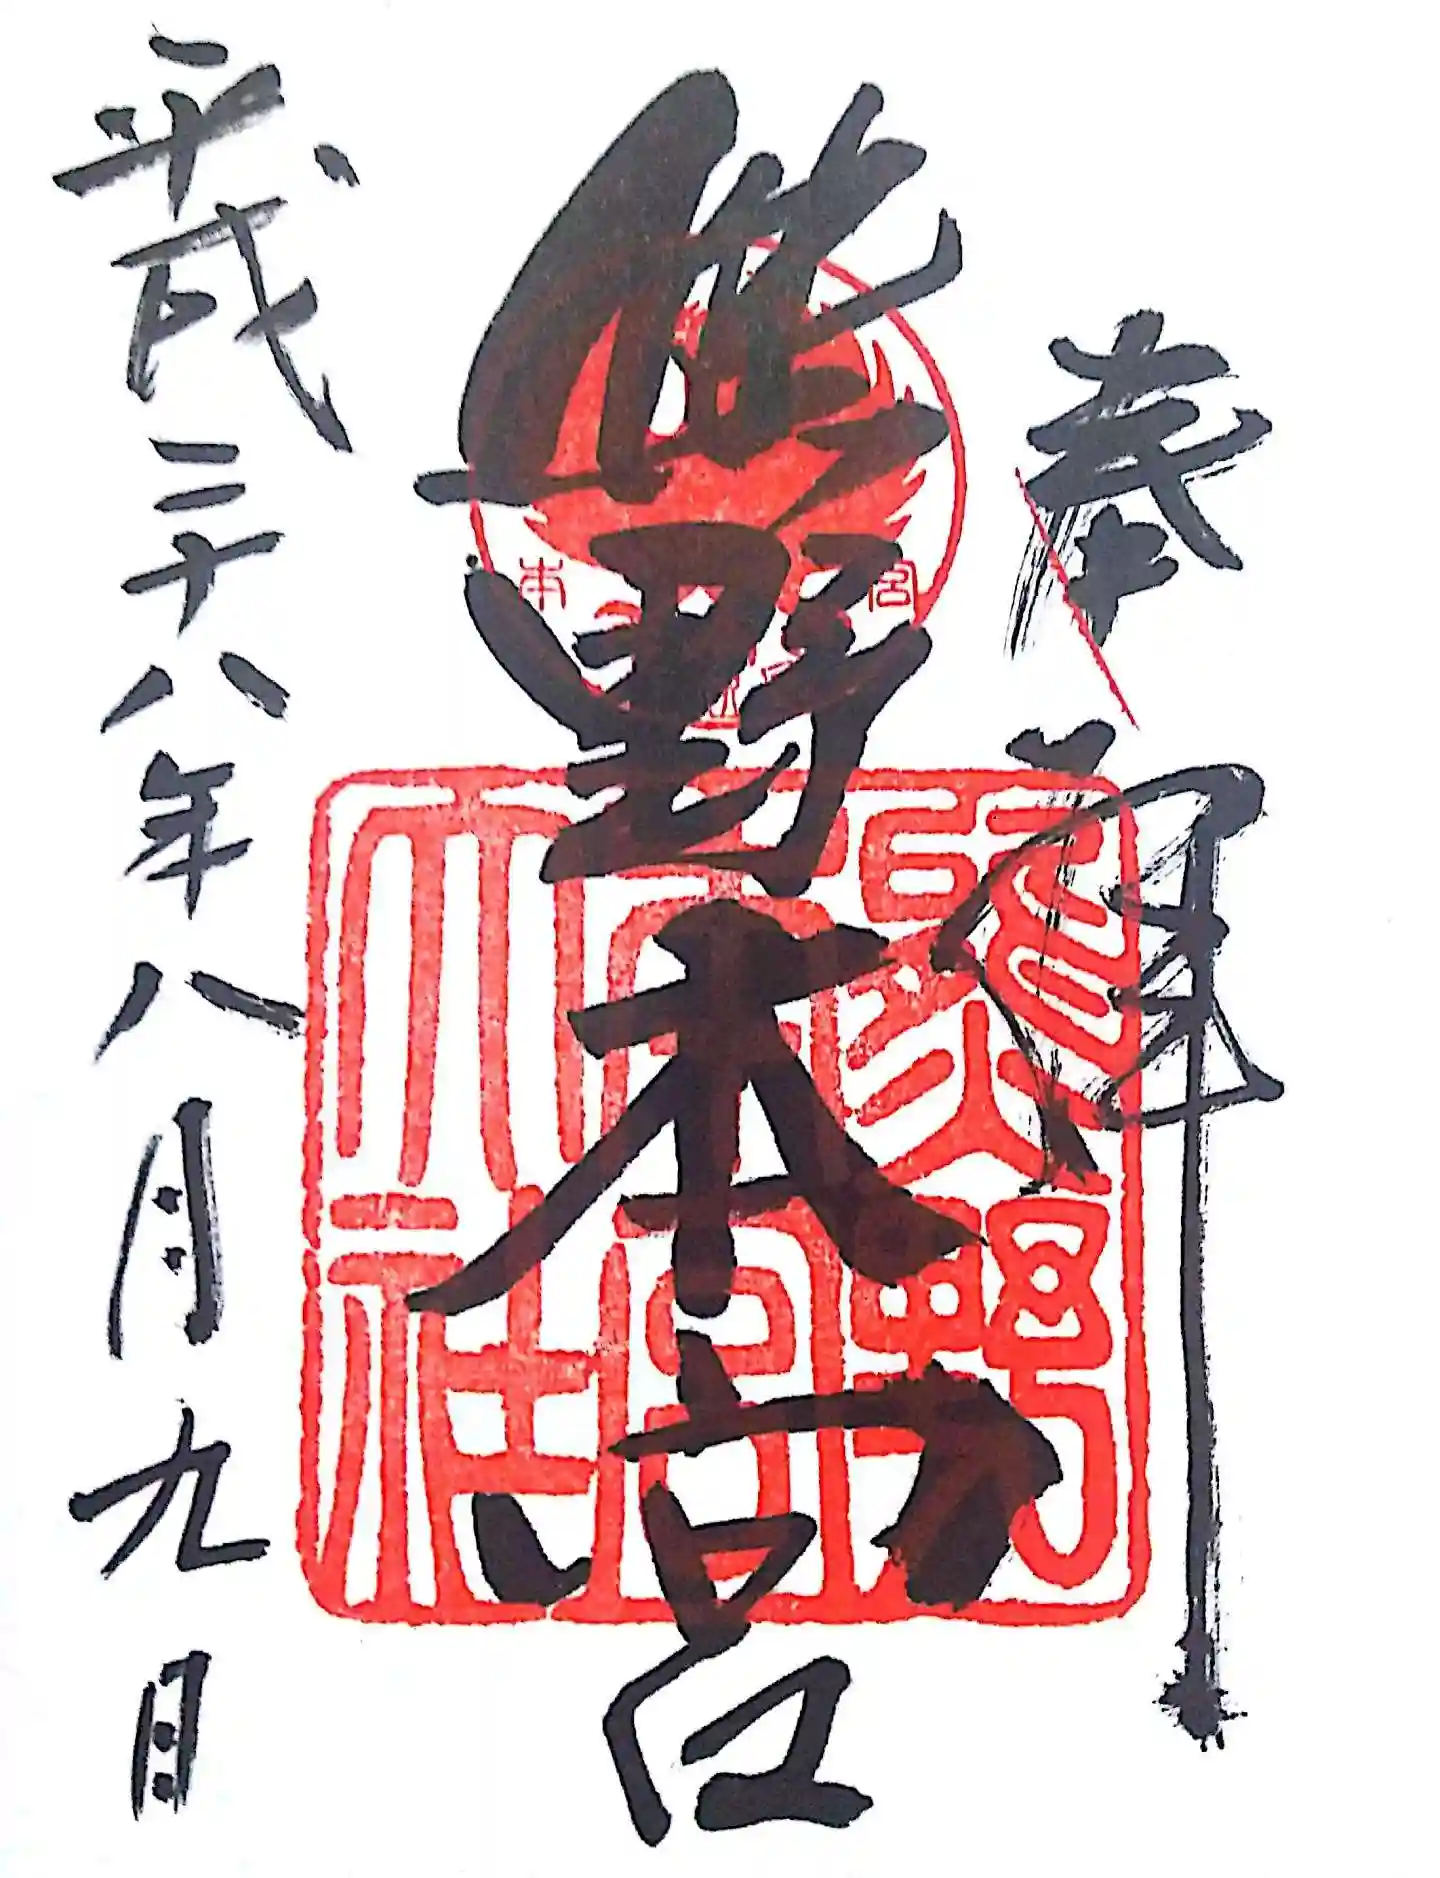 奉拝
熊野本宮
平成二十八年八月九日
熊野
本宮
大社